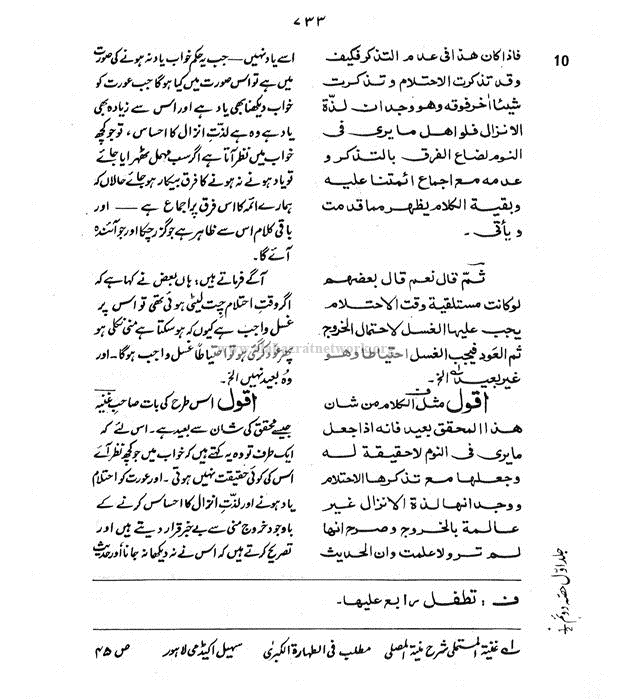 ۷۳۳
10
فاذا كان هذا فى عدم التذكر فكيف
وقد تذكرت الاحتلام وتذكرت
شيئا اٰخر فوقه وهو وجدان لذّة
الانزال فلو اهمل ما يرى فى
النوم لضاع الفرق بالتذكر و
عدمه مع اجماع ائمتنا عليه
وبقية الكلام يظهر مما قدمت
ويأتى۔
ثمّ قال نعم قال بعضهم
لو كانت مستلقية وقت الاحتلام
يجب عليها الغسل لاحتمال الخروج
ثم العود فيجب الغسل احتياطا وهو
غير بعيد الخ۔
اقول مثل الكلام من شان
هذا المحقق بعيد فانه اذا جعل
ما يرى فى النوم لا حقيقة له
وجعلها مع تذكرها الاحتلام
ووجدانها لذة الانزال غير
عالمة بالخروج وصرح انها
لم تر ولا علمت وان الحديث
اسے یاد نہیں — جب یہ حکم خواب یاد نہ ہونے کی صورت
میں ہے تو اس صورت میں کیا ہوگا جب عورت کو
خواب دیکھنا بھی یاد ہے اور اس سے زیادہ بھی
یاد ہے وہ ہے لذتِ انزال کا احساس، تو جو کچھ
خواب میں نظر آتا ہے اگر سب مہمل ٹھہرایا جائے
تو یاد ہونے نہ ہونے کا فرق بیکار ہو جائے حالاں کہ
ہمارے ائمہ کا اس فرق پر اجماع ہے — اور
باقی کلام اس سے ظاہر ہے جو گزر چکا اور جو آئندہ
آئے گا۔
آگے فرماتے ہیں: ہاں بعض نے کہا ہے کہ
اگر وقتِ احتلام چت لیٹی ہوئی تھی تو اس پر
غسل واجب ہے کیوں کہ ہو سکتا ہے منی نکلی ہو
پھر عود کر گئی ہو تو احتیاطاً غسل واجب ہوگا۔ اور
وُہ بعید نہیں الخ۔
اقول اس طرح کی بات صاحبِ غنیہ
جیسے محقق کی شان سے بعید ہے۔ اس لئے کہ
ایک طرف تو وہ یہ کہتے ہیں کہ خواب میں جو کچھ نظر آئے
اس کی کوئی حقیقت نہیں ہوتی۔ اور عورت کو احتلام
یاد ہونے اور لذتِ انزال کا احساس کرنے کے
باوجود خروجِ منی سے بے خبر قرار دیتے ہیں اور
تصریح کرتے ہیں کہ اس نے نہ دیکھا نہ جانا اور حدیث
ف: تطفل رابع عليها۔
لے غنیۃ المستملی شرح منیۃ المصلی مطلب فی الطہارۃ الکبرٰی سہیل اکیڈمی لاہور ص ۴۵
جلد اول حصہ دوم